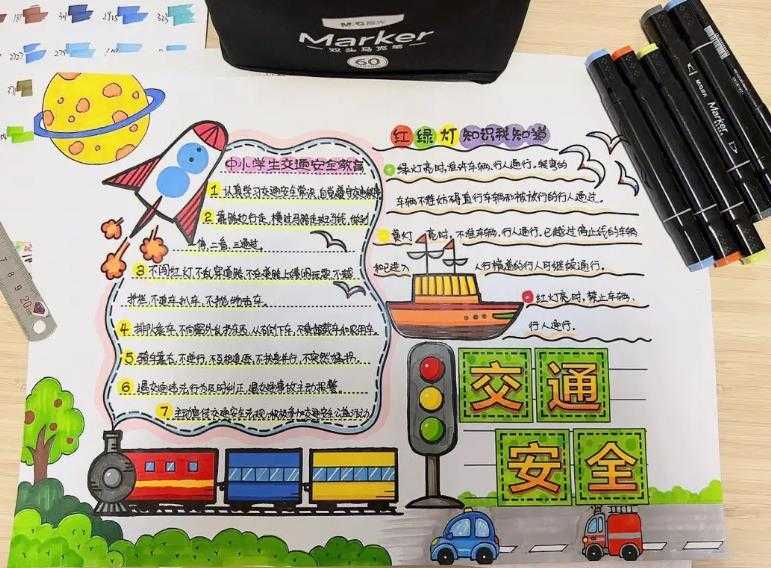 M&G
Marker
双头马克笔
60
中小学生交通安全教育
1 认真学习交通安全常识,自觉遵守交通规则
2 靠路边行走,横过马路走斑马线,做到
一停,二看,三通过。
3 不闯红灯,不乱穿道路,不在道路上嬉闹玩耍,不翻
护栏,不追车,扒车,不抛物击车。
4 排队乘车,不向窗外乱扔东西,从右侧下车,不乘超载车和农用车。
5 骑车靠右,不逆行,不互相追逐,不并肩并行,不突然猛拐。
6 遇交通违法行为及时纠正,遇交通事故主动报警。
7 主动宣传交通安全法规,积极参加交通安全公益活动
红绿灯知识我知道
绿灯亮时,准许车辆、行人通行,转弯的
车辆不准妨碍直行车辆和被放行的行人通过。
黄灯亮时,不准车辆、行人通行,已越过停止线的车辆
和已进入人行横道的行人可继续通行。
红灯亮时,禁止车辆、
行人通行。
交通
安全
Marker